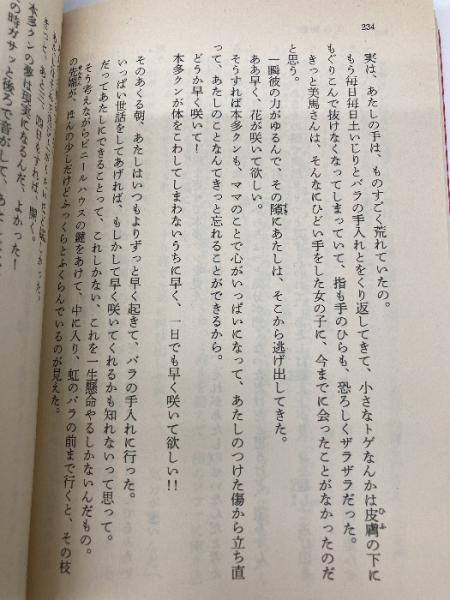 234
実は、あたしの手は、ものすごく荒れていたの。
もう毎日毎日土いじりとバラの手入れとをくり返してきて、小さなトゲなんかは皮膚の下に
もぐりこんで抜けなくなってしまっていて、指も手のひらも、恐ろしくザラザラだった。
きっと美馬さんは、そんなにひどい手をした女の子に、今までに会ったことがなかったのだ
と思う。
一瞬彼の力がゆるんで、その隙にあたしは、そこから逃げ出してきた。
ああ早く、花が咲いて欲しい。
そうすれば本多クンも、ママのことで心がいっぱいになって、あたしのつけた傷から立ち直
って、あたしのことなんてきっと忘れることができるから。
どうか早く咲いて！
本多クンが体をこわしてしまわないうちに早く、一日でも早く咲いて欲しい!!
そのあくる朝、あたしはいつもよりずっと早く起きて、バラの手入れに行った。
いっぱい世話をしてあげれば、もしかして早く咲いてくれるかも知れないって思って。
だってあたしにできることって、これしかない、これを一生懸命やるしかないんだもの。
そう考えながらビニールハウスの鍵をあけて、中に入り、虹のバラの前まで行くと、その枝
の先端が、ほんの少しだけどふっくらとふくらんでいるのが見えた。
きって、あと三、四日もすれば、開く。
本多クンの夢は現実になるんだ、よかった！
の時ガサッと後ろで音がして、あ